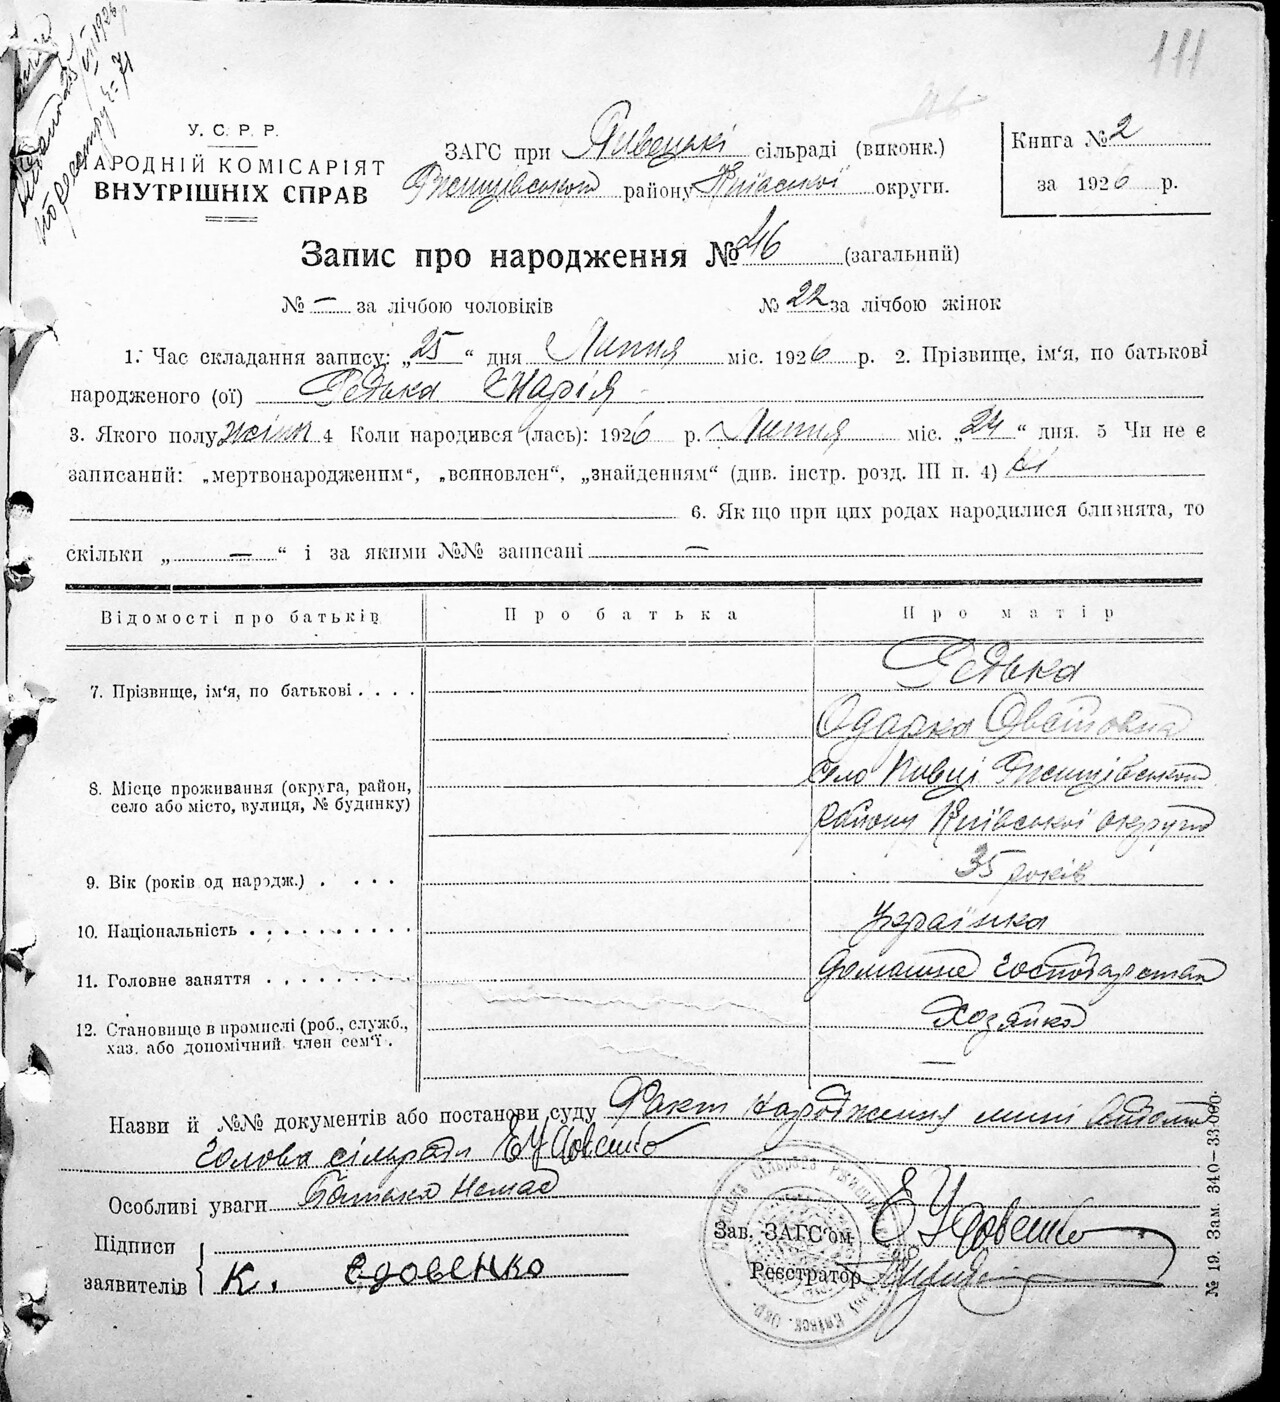 111
У. С. Р. Р.
АРОДНІЙ КОМІСАРІЯТ
ВНУТРІШНІХ СПРАВ
ЗАГС при Пивецькі сільраді (виконк.)
Ржищівського району Київської округи.
Книга № 2
за 1926 р.
Запис про народження № 46 (загальний)
№ — за лічбою чоловіків № 22 за лічбою жінок
1. Час складання запису: „25“ дня Липня міс. 1926 р. 2. Прізвище, ім‘я, по батькові
народженого (ої) Редька Марія
3. Якого полу жіноч 4 Коли народився (лась): 1926 р. Липня міс. „24“ дня. 5 Чи не є
записаний: „мертвонародженим“, „всиновлен“, „знайденням“ (див. інстр. розд. III п. 4) ні
6. Як що при цих родах народилися близнята, то
скільки „ — “ і за якими №№ записані —
Відомості про батьків Про батька Про матір
7. Прізвище, ім‘я, по батькові . . . . Редька
Одарка
8. Місце проживання (округа, район, село Пивці Ржищівського
село або місто, вулиця, № будинку) району Київської округи
9. Вік (років од народж.) . . . . 35 років
10. Національність . . . . . . . . . . Українка
11. Головне заняття . . . . . . . . домашне господарство
12. Становище в промислі (роб., служб., Хозяйка
хаз. або допомічний член сем‘ї . —
Назви й №№ документів або постанови суду Факт народження мині відомо
Голова сільради Е Удовенко
Особливі уваги Батька немає
Підписи
заявителів К. Єдовенко
Зав. ЗАГС‘ом Е Удовенко
Реєстратор
№ 19. Зам. 340—33.000.